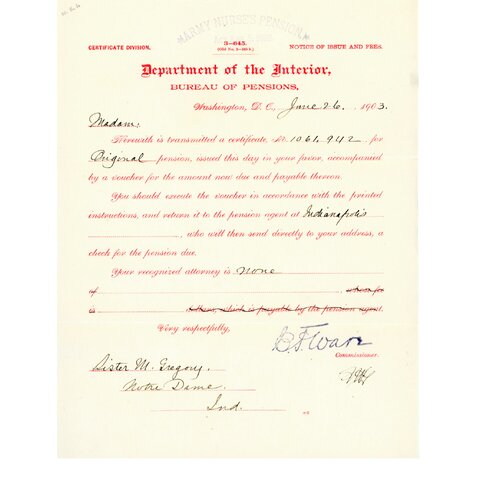 ARMY NURSE'S PENSION
3—645.
CERTIFICATE DIVISION. NOTICE OF ISSUE AND FEES.
Department of the Interior,
BUREAU OF PENSIONS,
Washington, D. C., June 26, 1903.
Madam:
Herewith is transmitted a certificate, No. 1064942 for
Original pension, issued this day in your favor, accompanied
by a voucher for the amount now due and payable thereon.
You should execute the voucher in accordance with the printed
instructions, and return it to the pension agent at Indianapolis
, who will then send directly to your address, a
check for the pension due.
Your recognized attorney is none
of , whose fee
is dollars, which is payable by the pension agent.
Very respectfully,
Commissioner.
Sister M. Gregory
Notre Dame.
Ind.